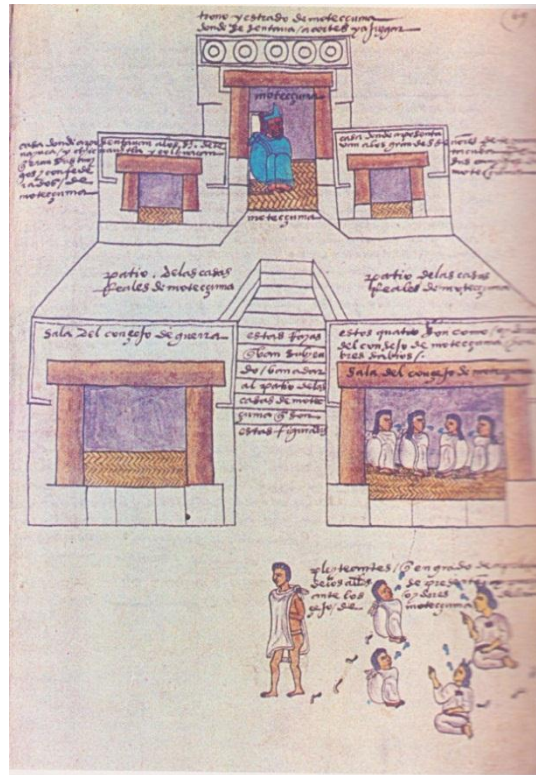 trono y estrado de motecçuma
donde se sentava / a cortes y a juzgar
69
motecçuma
motecçuma
casa donde aposentavan a los s.s de te
y culuacan
que heran sus ami
gos / y confede
rados / de
motecçuma
casa donde aposenta
van a los grandes señores de
motecçuma
patio . de las casas
Reales de motecçuma
patio de las casas
Reales de motecçuma
sala del conçejo de guerra
estas Rayas
van suben
do / van a dar
al patio de las
casas de mote
çuma q son
estas figuradas
estos quatro son como / oydores
del consejo de motecçuma / hon
bres sabios /.
sala del conçejo de motecçuma
pleyteantes / q en grado de
de los alldes se presentan
ante los oydores
çejo / de motecçuma